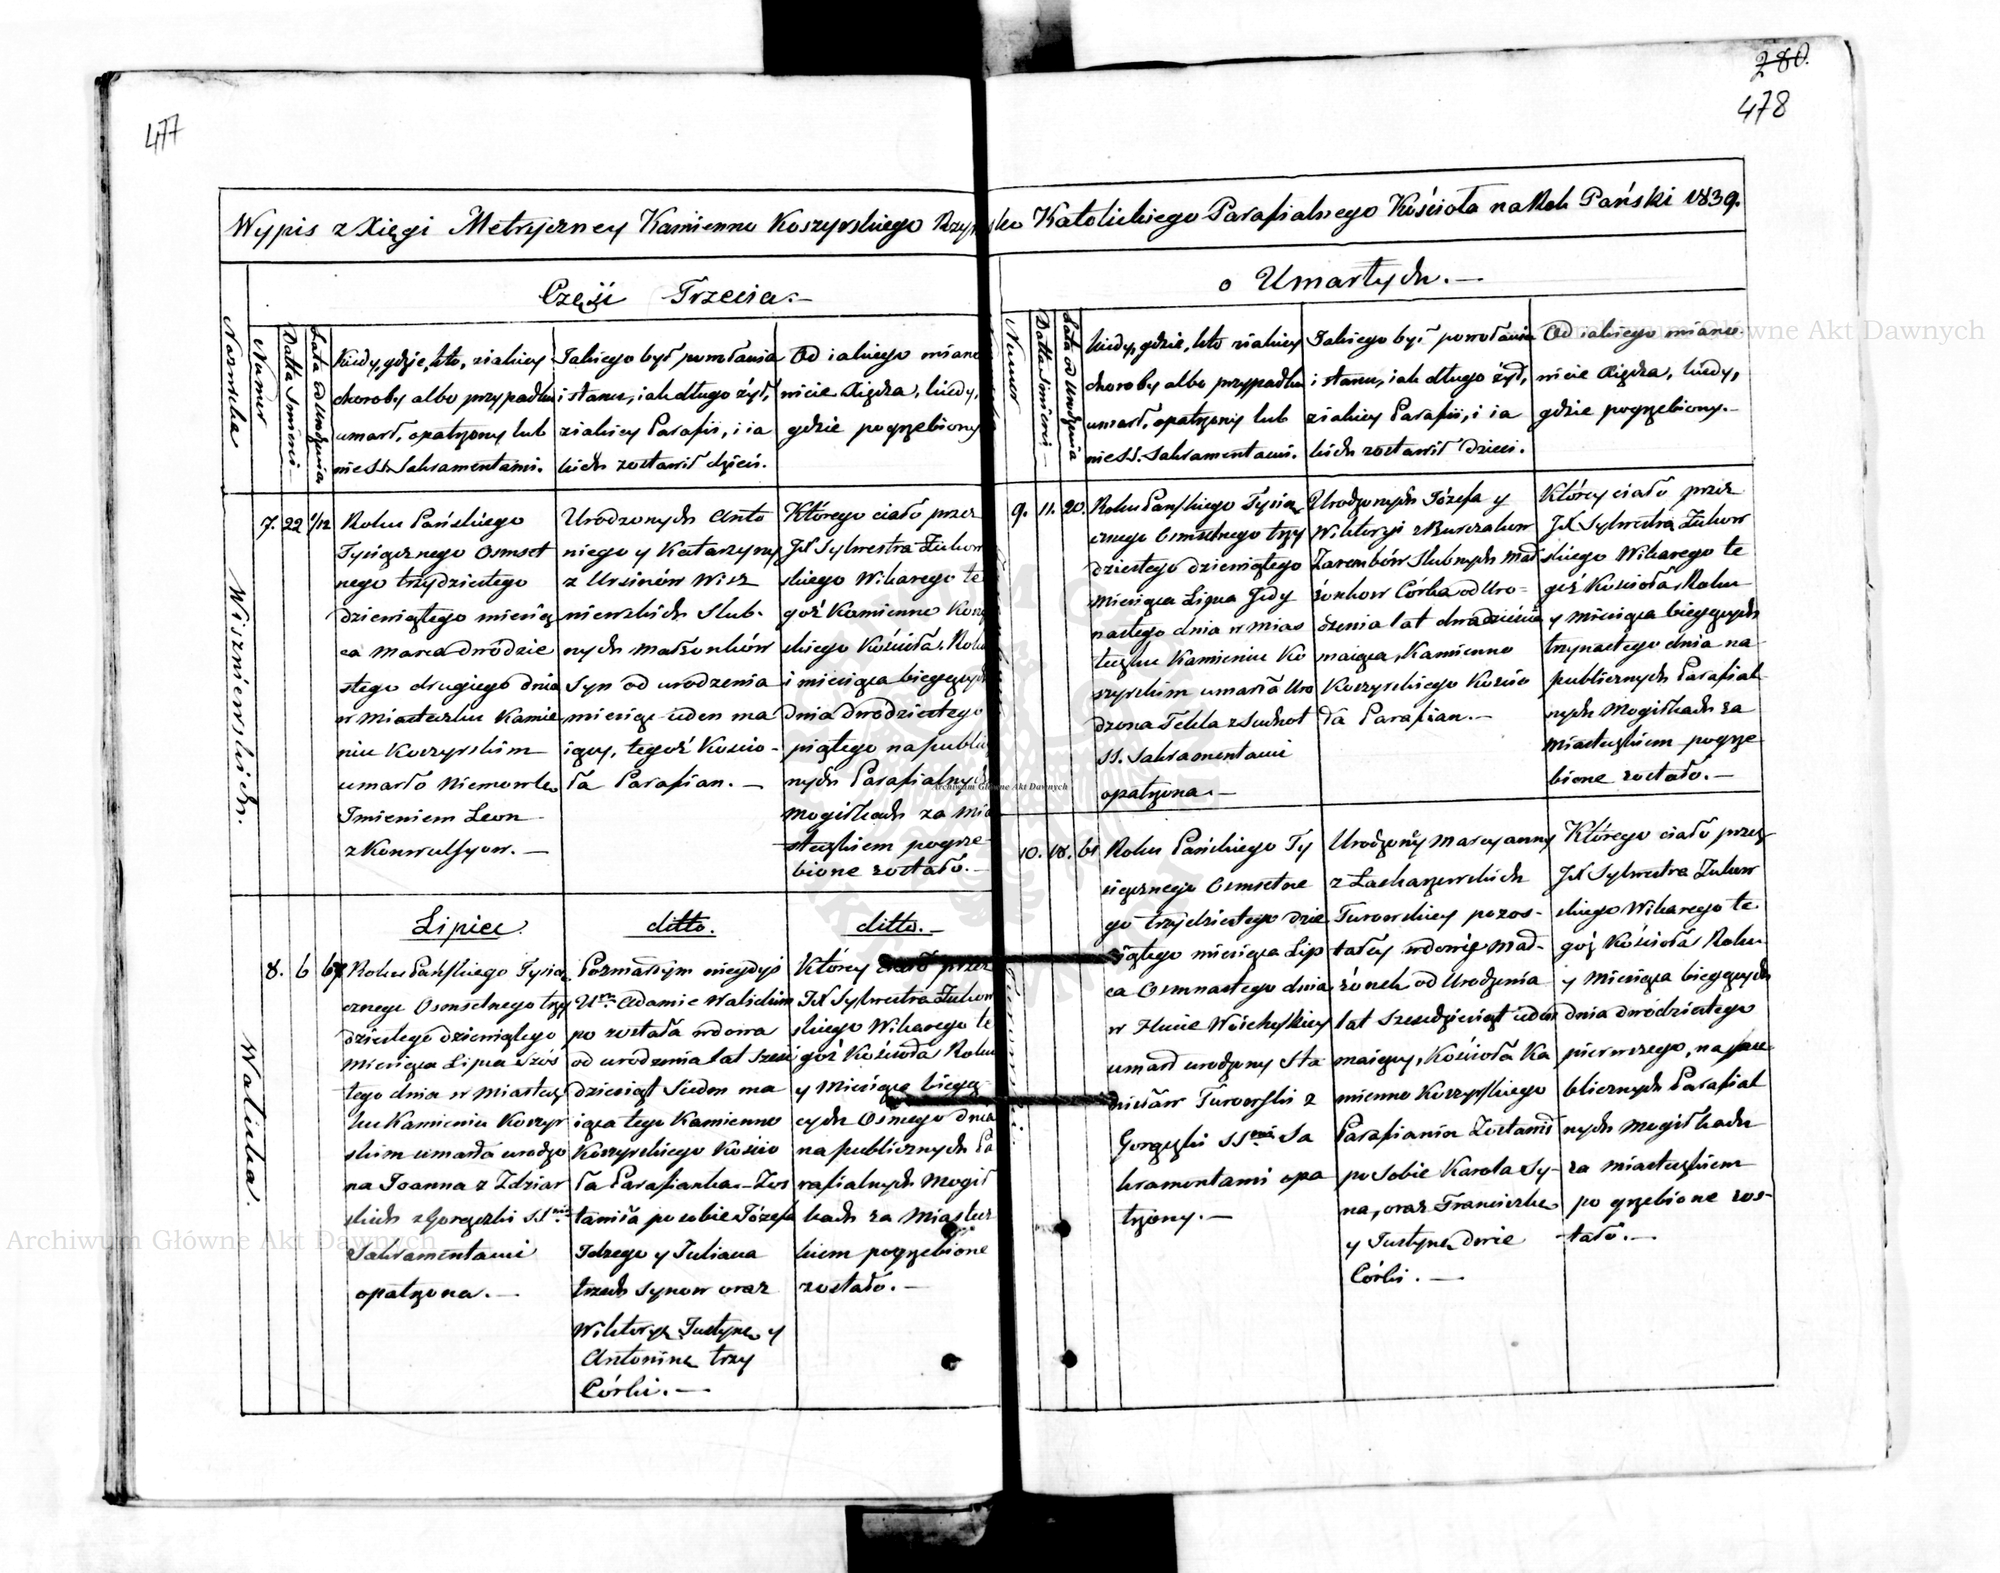 477
280.
478
Wypis z Xięgi Metryczney Kamienno Koszyrskiego Rzymsko Katolickiego Parafialnego Kościoła na Rok Pański 1839.
Część Trzecia.—
o Umarłych.—
Nazwiska
Numer
Datta Śmierci
Lata od Urodzenia
Kiedy, gdzie, kto, z iakiey
choroby albo przypadku
umarł, opatrzony lub
nie SS. Sakramentami.
Jakiego był powołania
i stanu, iak długo żył,
z iakiey Parafii, i ia
kich zostawił dzieci.
Od iakiego miano
nicie Xiędza, kiedy,
gdzie pogrzebiony
Wiszniewskich.
7. 22 1/12
Roku Pańskiego
Tysiącznego Osmset
nego trzydziestego
dziewiątego miesią
ca Marca dwódzie
stego drugiego dnia
w Miasteczku Kamie
niu Koszyrskim
umarło Niemowle
Imieniem Leon
z Konwulsyow.—
Urodzonych Anto
niego y Katarzyny
z Ursinów Wisz
niewskich Slub-
nych Małżonków
Syn od urodzenia
miesiąc ieden ma
iący, tegoż Kościo-
ła Parafian.—
Którego ciało przez
JX Sylwestra Żukow
skiego Wikarego te
goż Kamienno Koszy
skiego Kościoła Roku
i miesiąca bieżących
dnia dwodziestego
piątego na publi
nych Parafialnych
Mogiłkach za Mia
steczkiem pogrze-
bione zostało.—
Lipiec.
ditto.
ditto.—
Walicka.
8. 6 67
Roku Pańskiego Tysią
cznego Osmsetnego trzy
dziestego dziewiątego
Miesiąca Lipca szós
tego dnia w Miastecz
ku Kamieniu Koszyr
skim umarła urodzo
na Joanna z Zdziar
skich z Gorączki SSmi
Sakramentami
opatrzona.—
Pozmarłym niegdyś
Urm Adamie Walickim
po została wdowa
od urodzenia lat sześć
dziesiąt Siedm ma
iąca tego Kamienno
Koszyrskiego Kościo
ła Parafianka.—Zos
tawiła po sobie Józefa
Idzego y Juliana
trzech synow oraz
Wiktoryę Justynę y
Antoninę trzy
Córki.—
Którey ciało przez
JX Sylwestra Żukow
skiego Wikarego te
goż Kościoła Roku
y Miesiąca bieżą-
cych Osmego dnia
na publicznych Pa
rafialnych Mogił
kach za Miastecz
kiem pogrzebione
zostało.—
Numer
Datta Śmierci
Lata od Urodzenia
kiedy, gdzie, kto z iakiey
choroby albo przypadku
umarł, opatrzony lub
nie SS. Sakramentami.
Jakiego był powołania
i stanu, iak długo żył,
z iakiey Parafii, i ia
kich zostawił dzieci.
Od iakiego miano-
nicie Xiędza, kiedy,
gdzie pogrzebiony.—
9. 11. 20.
Roku Pańskiego Tysią
cznego Osmsetnego trzy
dziestego dziewiątego
Miesiąca Lipca Jedy
nastego dnia w Mias
teczku Kamieniu Ko
szyrskim umarła Uro
dzona Tekla z Suchot
SS. Sakramentami
opatrzona.—
Urodzonych Józefa y
Wiktoryi z Burczaków
Zarembów Slubnych Mał
żonkow Córka od Uro-
dzenia lat dwadzieścia
maiąca, Kamienno
Koszyrskiego Kościo
ła Parafian.—
Którey ciało przez
JX Sylwestra Żukow
skiego Wikarego te
goż Kościoła Roku
y Miesiąca bieżących
trzynastego dnia na
publicznych Parafial
nych Mogiłkach za
Miasteczkiem pogrze
bione zostało.—
10. 18. 61
Roku Pańskiego Ty
siącznego Osmsetne
go trzydziestego dzie
wiątego miesiąca Lip
ca Osmnastego dnia
umarł urodzony Sta
nisław Turowski z
Gorączki SSmi Sa
kramentami opa
trzony.—
Urodzoney Maryanny
Turowskiey pozos-
tałey wdowie Mał-
żonek od Urodzenia
lat Sześćdziesiąt ieden
maiący, Kościoła Ka
mienno Koszyrskiego
Parafianin Zostawił
po Sobie Karola Sy-
na, oraz Franciszkę
y Justynę dwie
Córki.—
Którego ciało przez
JX Sylwestra Żukow
skiego Wikarego te
goż Kościoła Roku
y Miesiąca bieżących
dnia dwódziestego
pierwszego, na pu
blicznych Parafial
nych Mogiłkach
za Miasteczkiem
po grzebione zos-
tało.—
Archiwum Główne Akt Dawnych
Archiwum Główne Akt Dawnych
Archiwum Główne Akt Dawnych